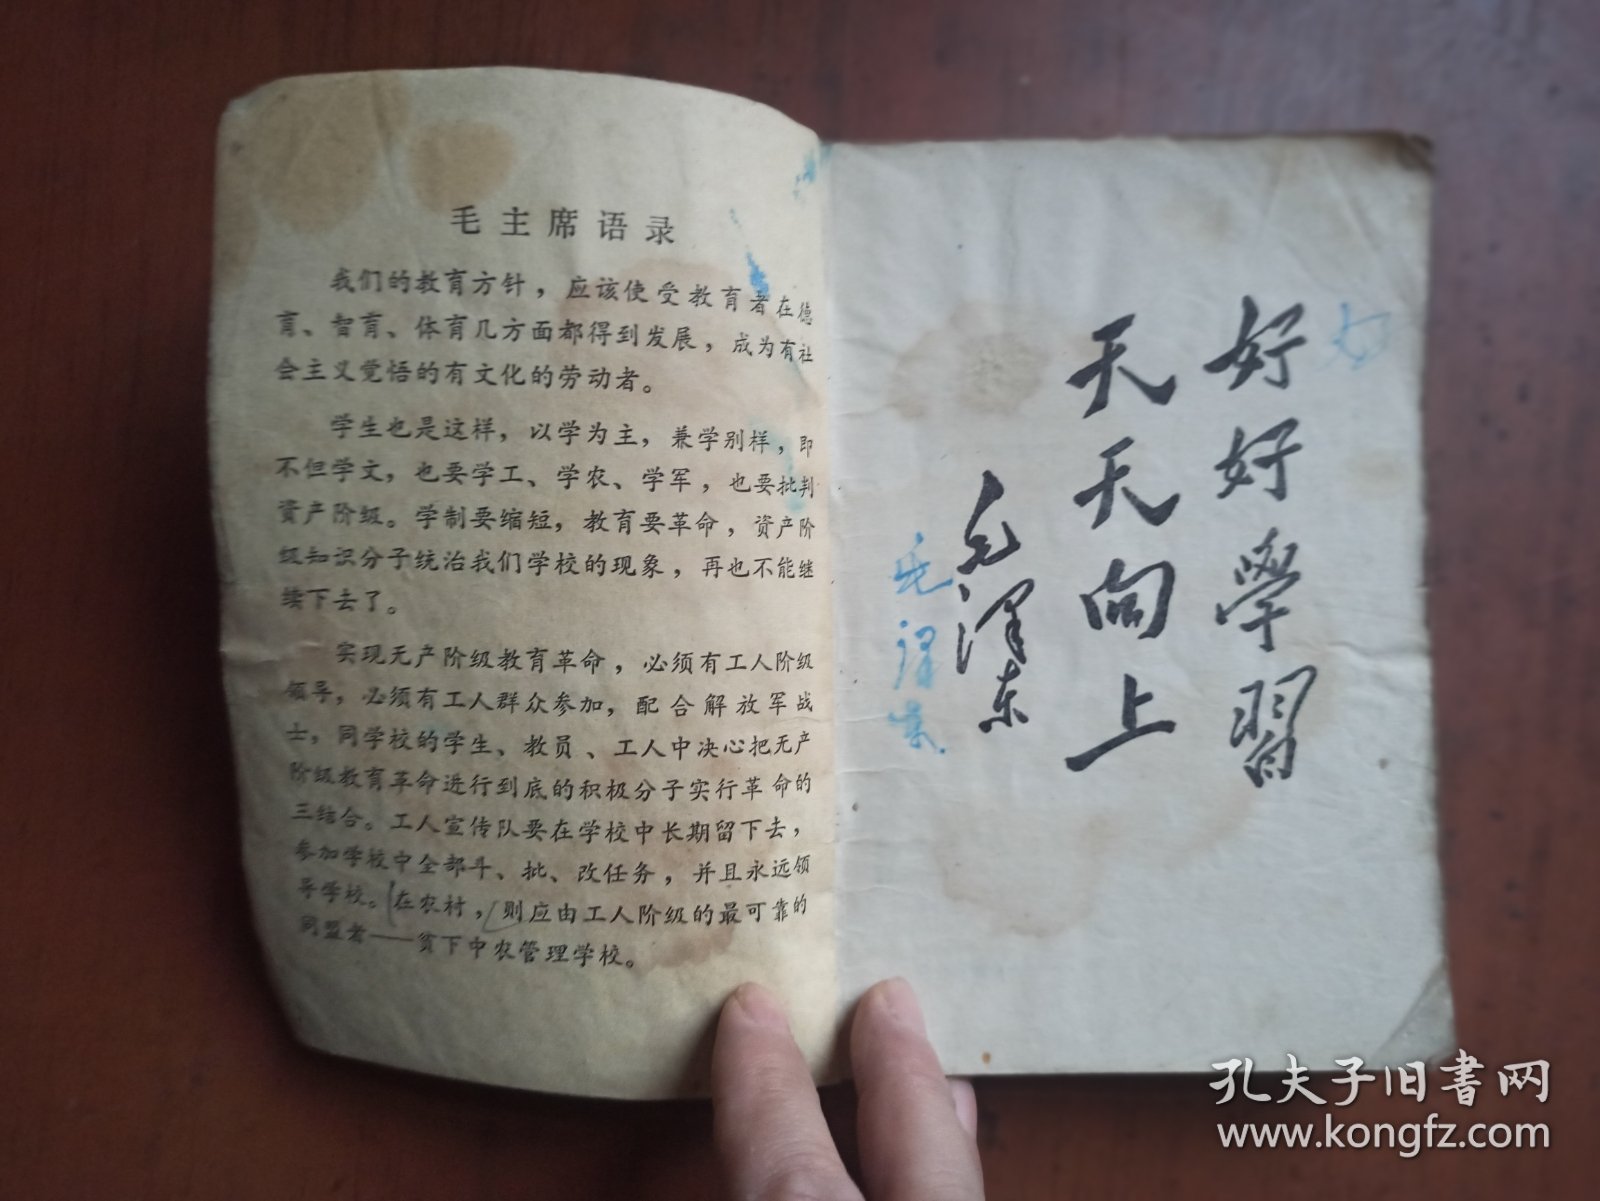 毛主席语录
我们的教育方针，应该使受教育者在德
育、智育、体育几方面都得到发展，成为有社
会主义觉悟的有文化的劳动者。
学生也是这样，以学为主，兼学别样，即
不但学文，也要学工、学农、学军，也要批判
资产阶级。学制要缩短，教育要革命，资产阶
级知识分子统治我们学校的现象，再也不能继
续下去了。
实现无产阶级教育革命，必须有工人阶级
领导，必须有工人群众参加，配合解放军战
士，同学校的学生、教员、工人中决心把无产
阶级教育革命进行到底的积极分子实行革命的
三结合。工人宣传队要在学校中长期留下去，
参加学校中全部斗、批、改任务，并且永远领
导学校。在农村，则应由工人阶级的最可靠的
同盟者——贫下中农管理学校。
好好學習
天天向上
毛泽东
毛泽东
孔夫子旧書网
www.kongfz.com